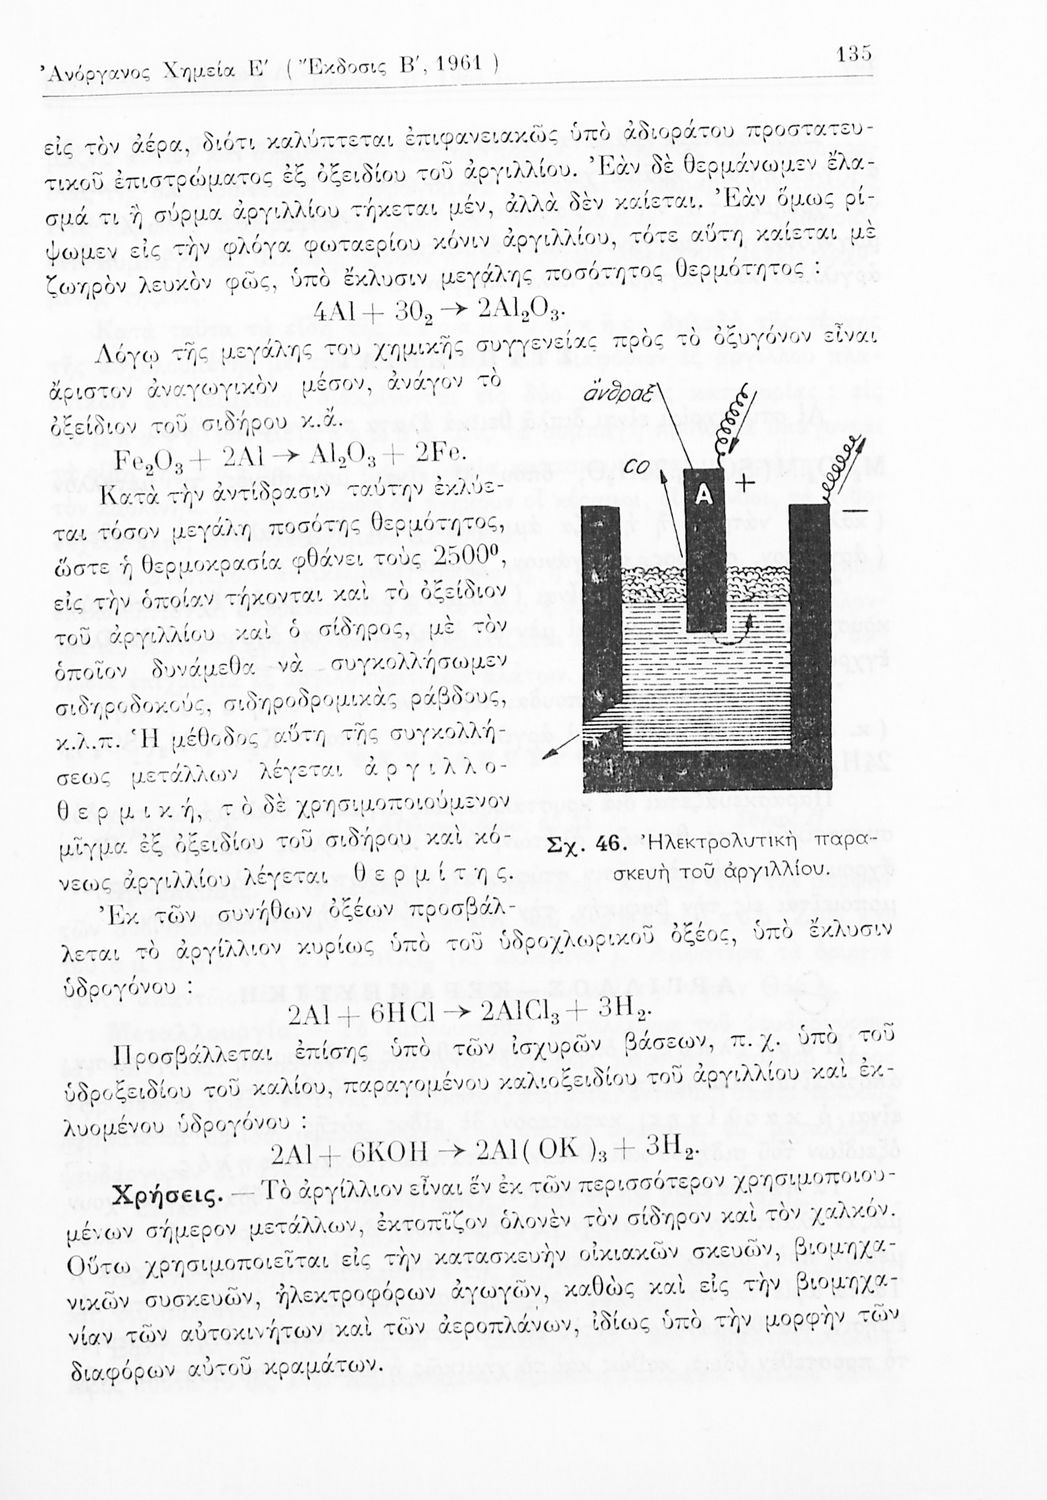 Ἀνόργανος Χημεία Ε′ ( Ἔκδοσις Β′, 1961 )
135
εἰς τὸν ἀέρα, διότι καλύπτεται ἐπιφανειακῶς ὑπὸ ἀδιοράτου προστατευ-
τικοῦ ἐπιστρώματος ἐξ ὀξειδίου τοῦ ἀργιλλίου. Ἐὰν δὲ θερμάνωμεν ἔλα-
σμά τι ἢ σύρμα ἀργιλλίου τήκεται μέν, ἀλλὰ δὲν καίεται. Ἐὰν ὅμως ρί-
ψωμεν εἰς τὴν φλόγα φωταερίου κόνιν ἀργιλλίου, τότε αὕτη καίεται μὲ
ζωηρὸν λευκὸν φῶς, ὑπὸ ἔκλυσιν μεγάλης ποσότητος θερμότητος :
4Al + 3O₂ → 2Al₂O₃.
Λόγῳ τῆς μεγάλης του χημικῆς συγγενείας πρὸς τὸ ὀξυγόνον εἶναι
ἄριστον ἀναγωγικὸν μέσον, ἀνάγον τὸ
ὀξείδιον τοῦ σιδήρου κ.ἄ.
Fe₂O₃ + 2Al → Al₂O₃ + 2Fe.
Κατὰ τὴν ἀντίδρασιν ταύτην ἐκλύε-
ται τόσον μεγάλη ποσότης θερμότητος,
ὥστε ἡ θερμοκρασία φθάνει τοὺς 2500⁰,
εἰς τὴν ὁποίαν τήκονται καὶ τὸ ὀξείδιον
τοῦ ἀργιλλίου καὶ ὁ σίδηρος, μὲ τὸν
ὁποῖον δυνάμεθα νὰ συγκολλήσωμεν
σιδηροδοκούς, σιδηροδρομικὰς ράβδους,
κ.λ.π. Ἡ μέθοδος αὕτη τῆς συγκολλή-
σεως μετάλλων λέγεται ἀργιλλο-
θερμική, τὸ δὲ χρησιμοποιούμενον
μῖγμα ἐξ ὀξειδίου τοῦ σιδήρου καὶ κό-
νεως ἀργιλλίου λέγεται θερμίτης.
ἄνθραξ
CO
A
+
—
Σχ. 46. Ἠλεκτρολυτικὴ παρα-
σκευὴ τοῦ ἀργιλλίου.
Ἐκ τῶν συνήθων ὀξέων προσβάλ-
λεται τὸ ἀργίλλιον κυρίως ὑπὸ τοῦ ὑδροχλωρικοῦ ὀξέος, ὑπὸ ἔκλυσιν
ὑδρογόνου :
2Al + 6HCl → 2AlCl₃ + 3H₂.
Προσβάλλεται ἐπίσης ὑπὸ τῶν ἰσχυρῶν βάσεων, π.χ. ὑπὸ τοῦ
ὑδροξειδίου τοῦ καλίου, παραγομένου καλιοξειδίου τοῦ ἀργιλλίου καὶ ἐκ-
λυομένου ὑδρογόνου :
2Al + 6KOH → 2Al( OK )₃ + 3H₂.
Χρήσεις. — Τὸ ἀργίλλιον εἶναι ἓν ἐκ τῶν περισσότερον χρησιμοποιου-
μένων σήμερον μετάλλων, ἐκτοπῖζον ὁλονὲν τὸν σίδηρον καὶ τὸν χαλκόν.
Οὕτω χρησιμοποιεῖται εἰς τὴν κατασκευὴν οἰκιακῶν σκευῶν, βιομηχα-
νικῶν συσκευῶν, ἠλεκτροφόρων ἀγωγῶν, καθὼς καὶ εἰς τὴν βιομηχα-
νίαν τῶν αὐτοκινήτων καὶ τῶν ἀεροπλάνων, ἰδίως ὑπὸ τὴν μορφὴν τῶν
διαφόρων αὐτοῦ κραμάτων.